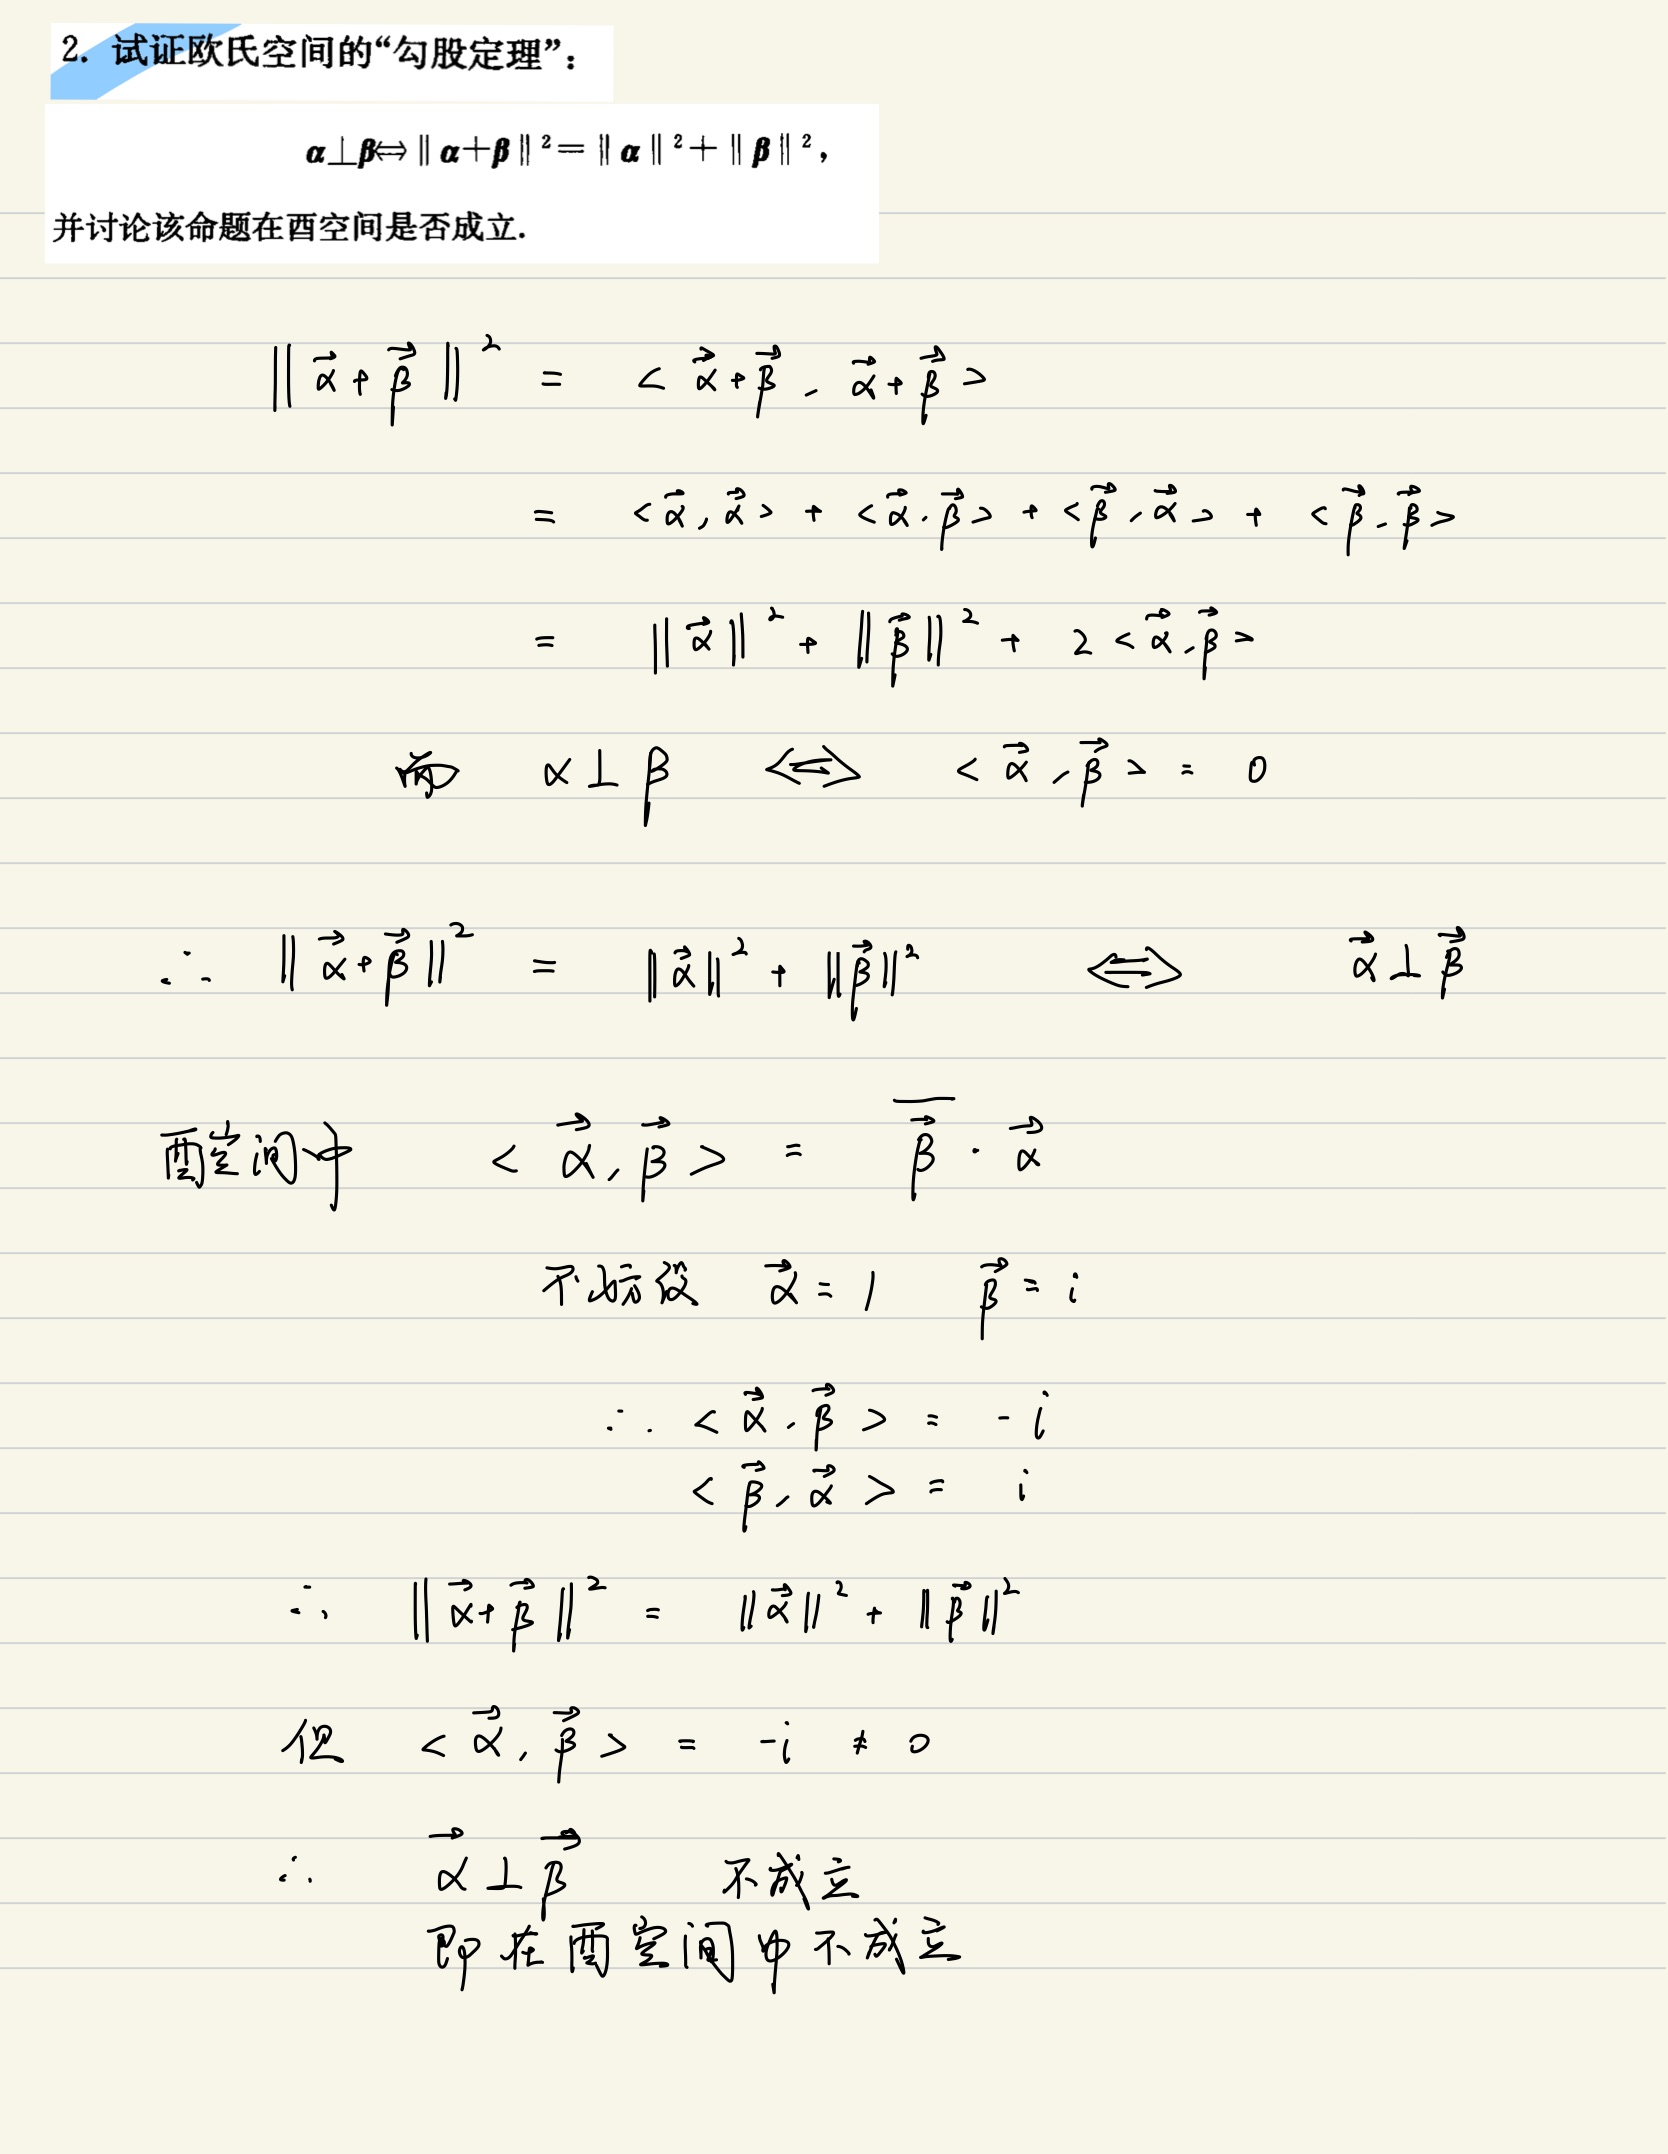 2. 试证欧氏空间的“勾股定理”：
α⊥β⇔‖α+β‖²=‖α‖²+‖β‖²,
并讨论该命题在酉空间是否成立.
‖α⃗+β⃗‖² = <α⃗+β⃗, α⃗+β⃗>
= <α⃗, α⃗> + <α⃗, β⃗> + <β⃗, α⃗> + <β⃗, β⃗>
= ‖α⃗‖² + ‖β⃗‖² + 2<α⃗, β⃗>
而 α⊥β ⇔ <α⃗, β⃗> = 0
∴ ‖α⃗+β⃗‖² = ‖α⃗‖² + ‖β⃗‖² ⇔ α⃗⊥β⃗
酉空间中 <α⃗, β⃗> = \overline{β⃗} · α⃗
不妨设 α⃗ = 1 β⃗ = i
∴ <α⃗, β⃗> = -i
<β⃗, α⃗> = i
∴ ‖α⃗+β⃗‖² = ‖α⃗‖² + ‖β⃗‖²
但 <α⃗, β⃗> = -i ≠ 0
∴ α⃗⊥β⃗ 不成立
即在酉空间中不成立